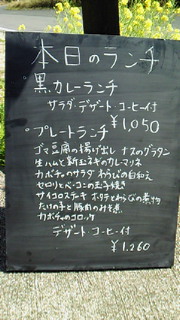 本日のランチ
黒カレーランチ
サラダ・デザート コーヒー付
¥1,050
プレートランチ
ゴマ豆腐の揚げ出し ナスのグラタン
生ハムと新玉ネギのカレーマリネ
カボチャのサラダ わらびの白和え
セロリとベーコンの玉子焼き
サイコロステーキ ホタテとわらびの煮物
たけの子と豚肉のみそ煮
カボチャのコロッケ
デザート コーヒー付
¥1,260